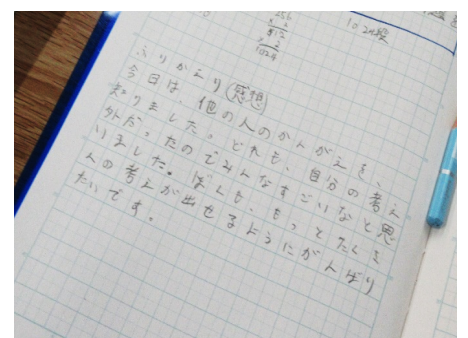 256
× 2
512
× 2
1024
10 2の段
ふりかえり(感想)
今日は、他の人のかんがえを、
知りました。どれも、自分の考え
外だったのでみんなすごいなと思
いました。ぼくも、もっとたくさ
んの考えが出せるようにがんばり
たいです。